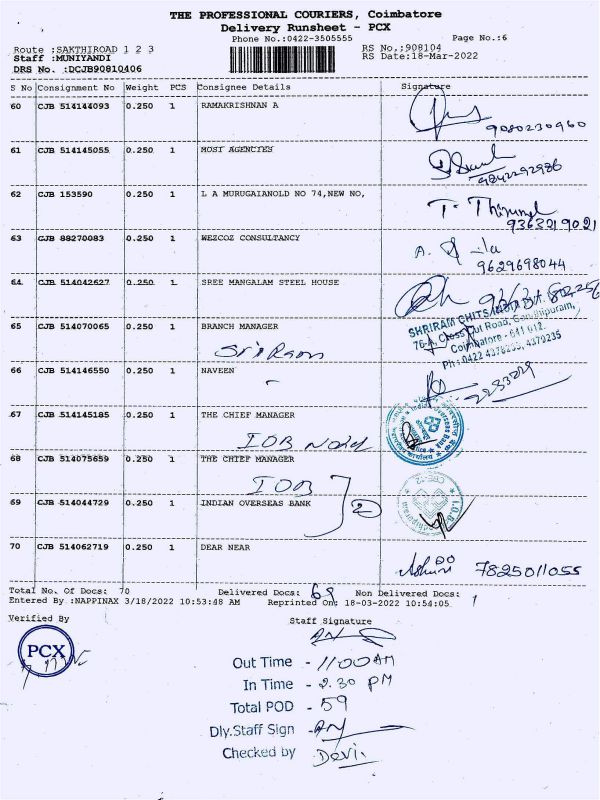 THE PROFESSIONAL COURIERS, Coimbatore
Delivery Runsheet - PCX
Phone No.:0422-3505555 Page No.:6
Route :SAKTHIROAD 1 2 3 RS No.:908104
Staff :MUNIYANDI RS Date:18-Mar-2022
DRS No. :DCJB90810406
S No Consignment No Weight PCS Consignee Details Signature
60 CJB 514144093 0.250 1 RAMAKRISHNAN A
9080230960
61 CJB 514145055 0.250 1 MOST AGENCIES
9842292986
62 CJB 153590 0.250 1 L A MURUGAIANOLD NO 74,NEW NO,
9363219021
63 CJB 88270083 0.250 1 WEZCOZ CONSULTANCY
9629698044
64 CJB 514042627 0.250 1 SREE MANGALAM STEEL HOUSE
65 CJB 514070065 0.250 1 BRANCH MANAGER
Sri Ram
SHRIRAM CHITS
Coimbatore - 641 012.
66 CJB 514146550 0.250 1 NAVEEN
67 CJB 514145185 0.250 1 THE CHIEF MANAGER
IOB
68 CJB 514075659 0.250 1 THE CHIEF MANAGER
IOB
69 CJB 514044729 0.250 1 INDIAN OVERSEAS BANK 2
70 CJB 514062719 0.250 1 DEAR NEAR
7825011055
Total No. Of Docs: 70 Delivered Docs: 69 Non Delivered Docs: 1
Entered By :NAPPINAX 3/18/2022 10:53:48 AM Reprinted On: 18-03-2022 10:54:05
Verified By Staff Signature
PCX
Out Time - 11 00 AM
In Time - 2.30 PM
Total POD - 59
Dly.Staff Sign -
Checked by Devi.